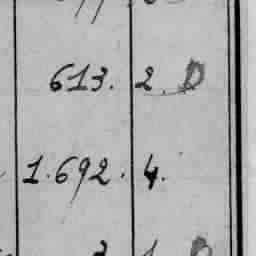 613. 2. D
1.692. 4.